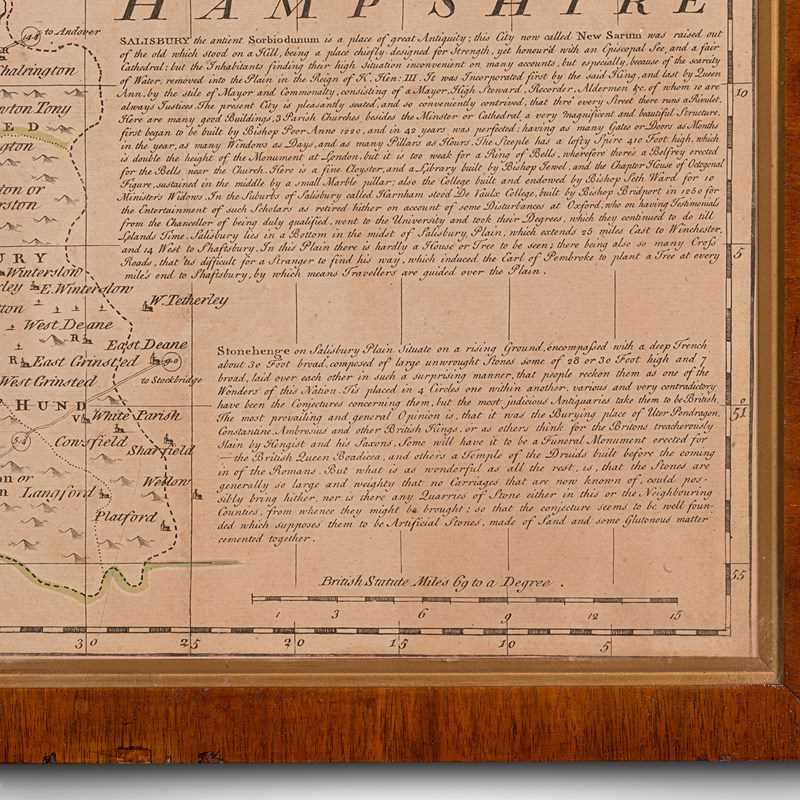 HAMPSHIRE
to Andover
Chalrington
SALISBURY the antient Sorbiodunum is a place of great Antiquity; this City now called New Sarum was raised out
of the old which stood on a Hill, being a place chiefly designed for Strength, yet honour'd with an Episcopal See, and a fair
Cathedral: but the Inhabitants finding their high Situation inconvenient on many accounts, but especially, because of the scarcity
of Water; removed into the Plain in the Reign of K. Hen: III. It was Incorporated first by the said King, and last by Queen
Ann, by the stile of Mayor and Commonalty, consisting of a Mayor, High Steward, Recorder, Aldermen &c. of whom 10 are
always Justices. The present City is pleasantly seated, and so conveniently contrived, that thro' every Street there runs a Rivulet.
Here are many good Buildings, 3 Parish Churches besides the Minster or Cathedral, a very Magnificent and beautiful Structure,
first began to be built by Bishop Poor Anno 1220, and in 42 years was perfected; having as many Gates or Doors as Months
in the year, as many Windows as Days, and as many Pillars as Hours. The Steeple has a lofty Spire 410 Foot high, which
is double the height of the Monument at London, but it is too weak for a Ring of Bells, wherefore there's a Belfrey erected
for the Bells near the Church. Here is a fine Cloyster, and a Library built by Bishop Jewel, and the Chapter House of Octogonal
Figure, sustained in the middle by a small Marble pillar; also the College built and endowed by Bishop Seth Ward for 10
Minister's Widows. In the Suburbs of Salisbury called Harnham stood De Vaulx College, built by Bishop Bridport in 1260 for
the Entertainment of such Scholars as retired hither on account of some Disturbances at Oxford, who on having Testimonials
from the Chancellor of being duly qualified, went to the University and took their Degrees, which they continued to do till
Lelands Time. Salisbury lies in a Bottom in the midst of Salisbury Plain, which extends 25 miles East to Winchester,
and 14 West to Shaftsbury. In this Plain there is hardly a House or Tree to be seen; there being also so many Cross
Roads, that 'tis difficult for a Stranger to find his way, which induced the Earl of Pembroke to plant a Tree at every
mile's end to Shaftsbury, by which means Travellers are guided over the Plain.
wton Tony
10
ED
gton
on or
rston
URY
5
Winterslow
ley
E. Winterslow
ton
W. Tetherley
West Deane
R
East Deane
R
East Grinsted
90
West Grinsted
to Stockbridge
Stonehenge on Salisbury Plain. Situate on a rising Ground, encompassed with a deep Trench
about 30 Foot broad, composed of large unwrought Stones some of 28 or 30 Foot high and 7
broad, laid over each other in such a surprising manner, that people reckon them as one of the
Wonders of this Nation. Tis placed in 4 Circles one within another, various and very contradictory
have been the Conjectures concerning them, but the most judicious Antiquaries take them to be British.
The most prevailing and general Opinion is, that it was the Burying place of Uter Pendragon,
Constantine, Ambresius and other British Kings, or as others think for the Britons treacherously
slain by Hengist and his Saxons. Some will have it to be a Funeral Monument erected for
the British Queen Boadicea, and others a Temple of the Druids built before the coming
in of the Romans. But what is as wonderful as all the rest, is, that the Stones are
generally so large and weighty that no Carriages that are now known of, could pos-
sibly bring hither, nor is there any Quarries of Stone either in this or the Neighbouring
Counties, from whence they might be brought; so that the conjecture seems to be well foun-
ded which supposes them to be Artificial Stones, made of Sand and some Glutonous matter
cemented together.
0
51
HUND
V
White Parish
54
Cowsfield
Sharffield
on or
n
Langford
Wellow
Platford
55
British Statute Miles 69 to a Degree.
1 3 6 9 12 15
30 25 20 15 10 5